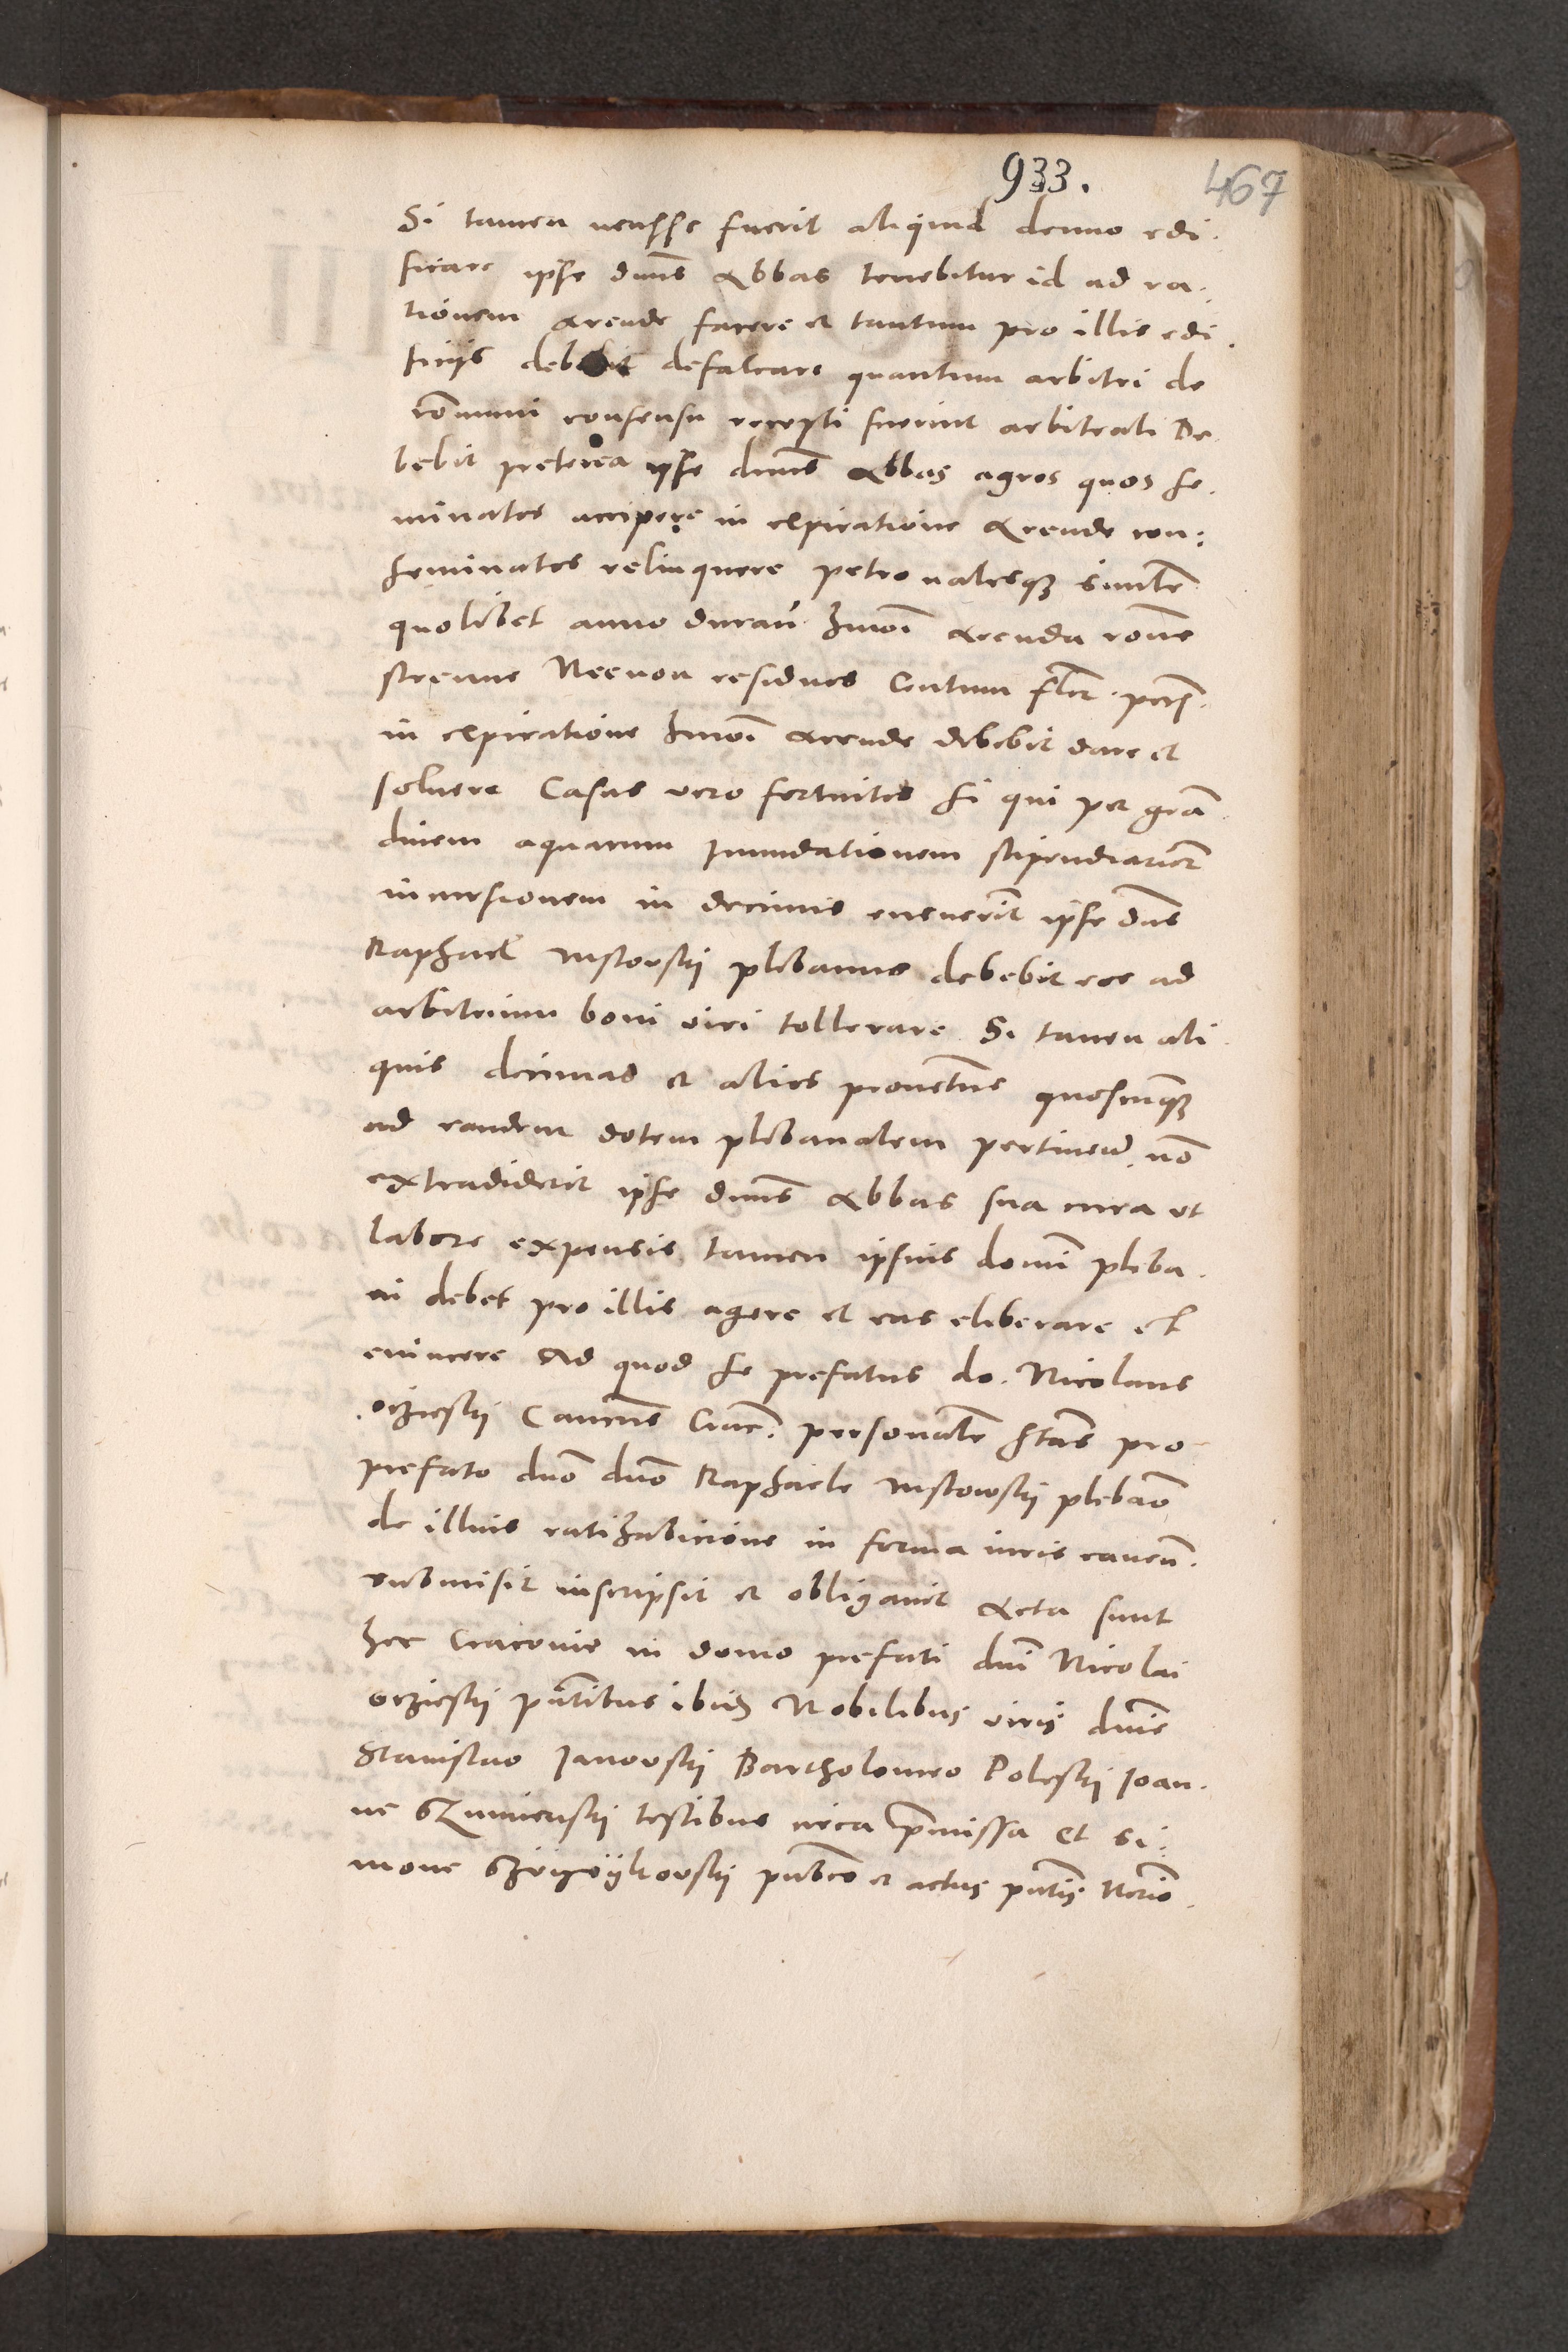 933.
467
Si tamen necesse fuerit aliquid denuo edi
ficare ipse dnns Abbas tenebitur id ad ra
tionem Arende facere et tantum pro illis edi
ficijs debebit defalcare quantum arbitri de
comuni consensu recepti fuerint arbitrati De
bebit preterea ipse dnns Abbas agros quos se
minatos acciperẹ in expiratione Arende con:
seminatos relinquere petro nalesqz similr
quolibet anno duran hmoi Arenda
Necnon residuos Centum flor. pecῆ.
in expiratione hmoi Arende debebit dare et
soluere Casus vero fortuitos si qui per gran
dinem aquarum Inundationem stipendiarior
incursionem in decimis euenerint ipse dns
Raphael plebanus debebit eos ad
arbitrium boni viri tollerare Si tamen ali
quis decimas et alios prouentus quoscunqz
ad eandem dotem plebanalem pertinen. no
extradiderit ipse dnns Abbas sua cura et
labore expensis tamen ipsius domi pleba
ni debet pro illis agere et eas eliberare et
euincere Ad quod se prefatus do. Nicolaus
Cancus Crac. personalr stans pro
prefato dno dno Raphaele plebano
de illius ratihabicione in forma iuris cauen.
submisit inscripsit et obligauit Acta sunt
hec Cracouie in domo prefati dni Nicolai
pntibus ibidz Nobilibus viris dnis
Stanislao Janovskij Bartholomeo Poleskij Joan
ne testibus circa pmissa Et Si:
mone pubco et actus pntis Notrio.